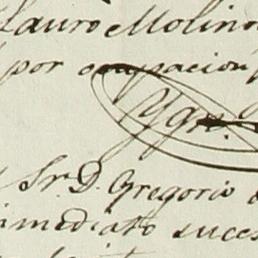 Lauro Molino
por ocupacion
Ygn.
Sr. D. Gregorio
inmediato suces